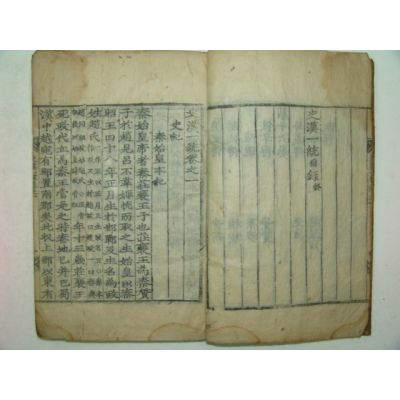 史漢一統目錄終
史漢一統卷之一
史記
秦始皇本紀
秦始皇帝者秦莊襄王子也莊襄王爲秦質
子於趙見呂不韋姬悅而取之生始皇以秦
昭王四十八年正月生於邯鄲及生名爲政
姓趙氏
年十三歲莊襄王
死政代立爲秦王當是之時秦地已并巴蜀
漢中越宛有郢置南郡矣北收上郡以東有